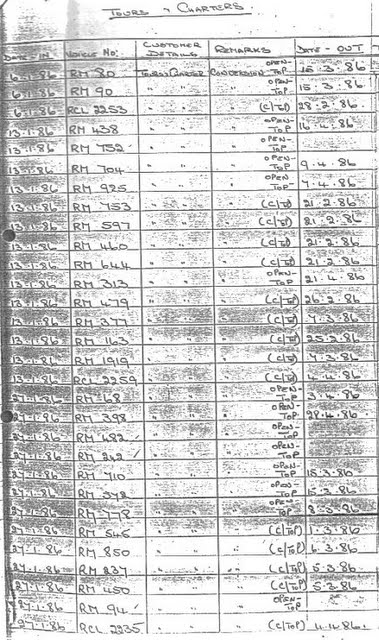 TOURS & CHARTERS
DATE-IN VEHICLE NO. CUSTOMER DETAILS REMARKS DATE-OUT
6.1.86 RM 80 TOURS/CHARTER CONVERSION OPEN-TOP 15.3.86
6.1.86 RM 90 " " " OPEN-TOP 15.3.86
6.1.86 RCL 2253 " " " (C/TOP) 28.2.86
13.1.86 RM 438 " " " OPEN-TOP 16.4.86
13.1.86 RM 752 " " " OPEN-TOP
13.1.86 RM 704 " " " OPEN-TOP 9.4.86
13.1.86 RM 925 " " " OPEN-TOP 7.4.86
13.1.86 RM 753 " " " (C/TOP) 21.2.86
13.1.86 RM 597 " " " (C/TOP) 21.2.86
13.1.86 RM 460 " " " (C/TOP) 21.2.86
13.1.86 RM 644 " " " (C/TOP) 21.2.86
13.1.86 RM 313 " " " OPEN-TOP 21.4.86
13.1.86 RM 479 " " " (C/TOP) 26.2.86
13.1.86 RM 377 " " " (C/TOP) 7.3.86
13.1.86 RM 1163 " " " (C/TOP) 25.2.86
13.1.86 RM 1919 " " " (C/TOP) 7.3.86
13.1.86 RCL 2259 " " " (C/TOP) 4.4.86
27.1.86 RM 68 " " " OPEN-TOP 3.4.86
27.1.86 RM 398 " " " OPEN-TOP 28.4.86
27.1.86 RM 482 " " " OPEN-TOP
27.1.86 RM 242 " " " OPEN-TOP
27.1.86 RM 710 " " " OPEN-TOP 15.3.86
27.1.86 RM " " " OPEN-TOP 15.3.86
27.1.86 RM 778 " " " OPEN-TOP 8.3.86
27.1.86 RM 545 " " " (C/TOP) 1.3.86
27.1.86 RM 850 " " " (C/TOP) 6.3.86
27.1.86 RM 837 " " " (C/TOP) 5.3.86
27.1.86 RM 450 " " " (C/TOP) 5.3.86
27.1.86 RM 94 " " " OPEN-TOP
RCL 2235 " " " (C/TOP) 4.4.86